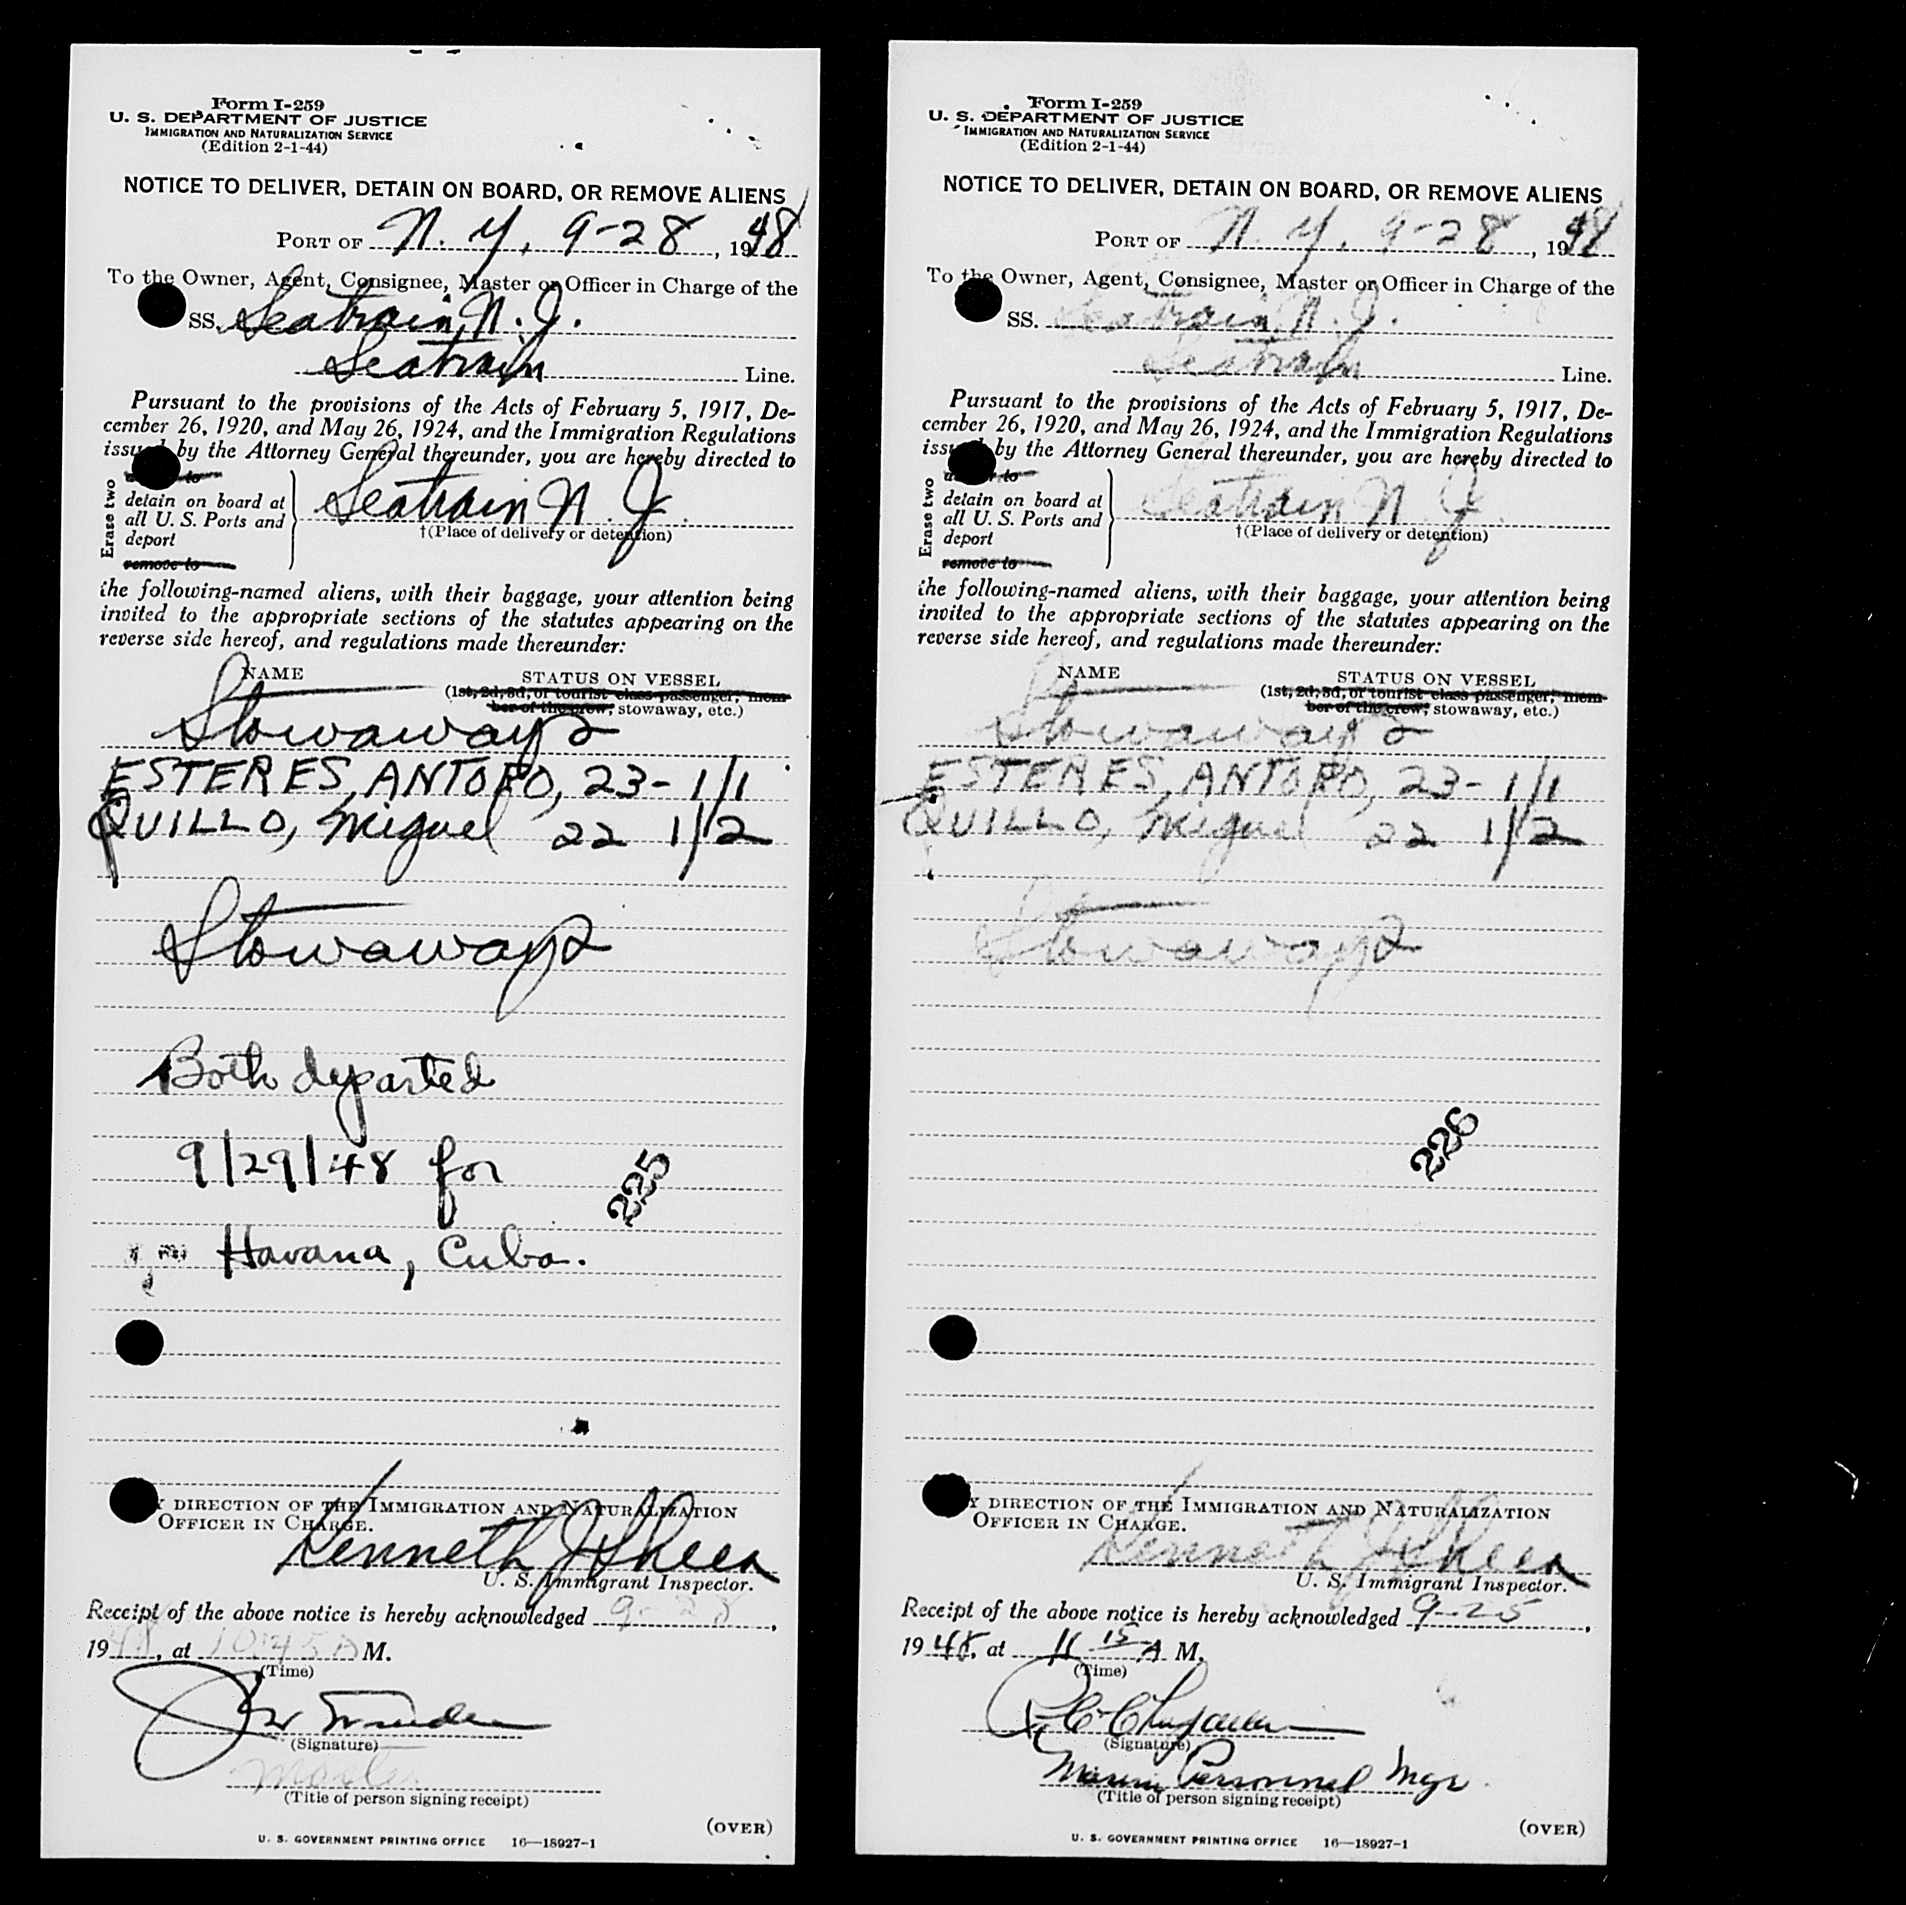 Form I-259
U. S. DEPARTMENT OF JUSTICE
IMMIGRATION AND NATURALIZATION SERVICE
(Edition 2-1-44)
NOTICE TO DELIVER, DETAIN ON BOARD, OR REMOVE ALIENS
PORT OF N. Y. 9-28, 1948
To the Owner, Agent, Consignee, Master or Officer in Charge of the
SS. Seatrain, N. J.
Seatrain Line.
Pursuant to the provisions of the Acts of February 5, 1917, De-
cember 26, 1920, and May 26, 1924, and the Immigration Regulations
issued by the Attorney General thereunder, you are hereby directed to
Erase two
detain on board at
all U. S. Ports and
deport
remove to
Seatrain N. J.
†(Place of delivery or detention)
the following-named aliens, with their baggage, your attention being
invited to the appropriate sections of the statutes appearing on the
reverse side hereof, and regulations made thereunder:
NAME STATUS ON VESSEL
(1st, 2d, 3d, or tourist class passenger, mem-
ber of the crew, stowaway, etc.)
Stowaways
ESTERES, ANTORO, 23- 1/1
QUILLO, Miguel 22 1/2
Stowaways
Both departed
9/29/48 for
225
Havana, Cuba.
BY DIRECTION OF THE IMMIGRATION AND NATURALIZATION
OFFICER IN CHARGE.
Kenneth
U. S. Immigrant Inspector.
Receipt of the above notice is hereby acknowledged 9-28,
1948, at 10:45 A M.
(Time)
(Signature)
Master
(Title of person signing receipt)
(OVER)
U. S. GOVERNMENT PRINTING OFFICE 16—18927-1
Form I-259
U. S. DEPARTMENT OF JUSTICE
IMMIGRATION AND NATURALIZATION SERVICE
(Edition 2-1-44)
NOTICE TO DELIVER, DETAIN ON BOARD, OR REMOVE ALIENS
PORT OF N. Y. 9-28, 1948
To the Owner, Agent, Consignee, Master or Officer in Charge of the
SS. Seatrain, N. J.
Seatrain Line.
Pursuant to the provisions of the Acts of February 5, 1917, De-
cember 26, 1920, and May 26, 1924, and the Immigration Regulations
issued by the Attorney General thereunder, you are hereby directed to
Erase two
detain on board at
all U. S. Ports and
deport
remove to
Seatrain N. J.
†(Place of delivery or detention)
the following-named aliens, with their baggage, your attention being
invited to the appropriate sections of the statutes appearing on the
reverse side hereof, and regulations made thereunder:
NAME STATUS ON VESSEL
(1st, 2d, 3d, or tourist class passenger, mem-
ber of the crew, stowaway, etc.)
Stowaways
ESTERES, ANTORO, 23- 1/1
QUILLO, Miguel 22 1/2
Stowaways
226
BY DIRECTION OF THE IMMIGRATION AND NATURALIZATION
OFFICER IN CHARGE.
Kenneth
U. S. Immigrant Inspector.
Receipt of the above notice is hereby acknowledged 9-25,
1948, at 11 15 A M.
(Time)
(Signature)
Marine Personnel Mgr.
(Title of person signing receipt)
(OVER)
U. S. GOVERNMENT PRINTING OFFICE 16—18927-1